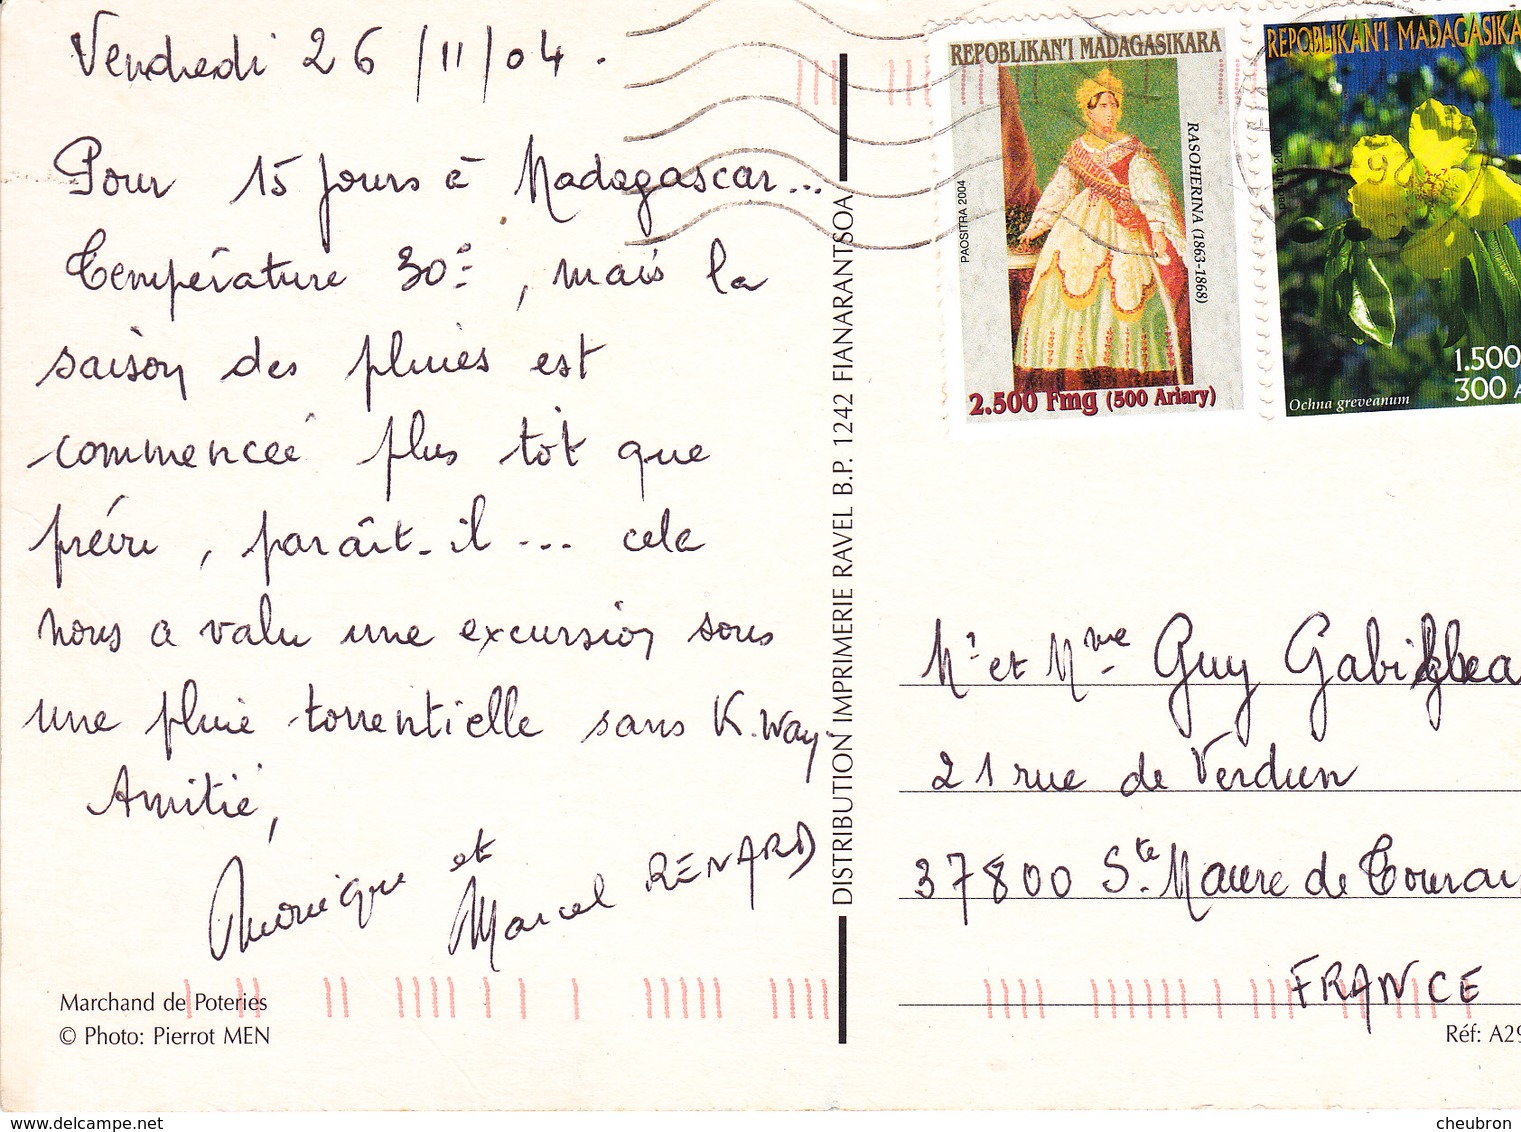 Vendredi 26/11/04.
Pour 15 jours à Madagascar...
Température 30°, mais la
saison des pluies est
commencée plus tôt que
prévu, paraît-il... cela
nous a valu une excursion sous
une pluie torrentielle sans K.Way.
Amitié,
et
Marcel RENARD
Marchand de Poteries
© Photo: Pierrot MEN
DISTRIBUTION IMPRIMERIE RAVEL B.P. 1242 FIANARANTSOA
REPOBLIKAN'I MADAGASIKARA
RASOHERINA (1863-1868)
PAOSITRA 2004
2.500 Fmg (500 Ariary)
REPOBLIKAN'I MADAGASIKA
Ochna greveanum
1.500
300 A
Mr et Mme Guy
21 rue de Verdun
37800 Ste. Maure de Tourai
FRANCE
Réf: A29
www.delcampe.net
cheubron